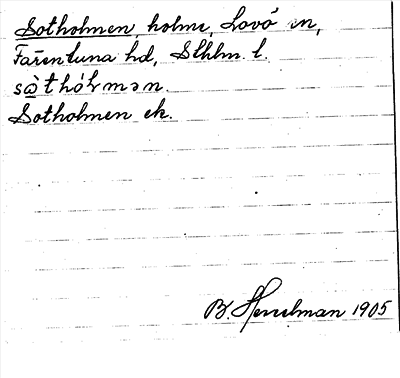 Sotholmen, holme, Lovö sn,
Färentuna hd, Sthlm. l.
sò̱thólmən.
Sotholmen ek.
B. Hesselman 1905